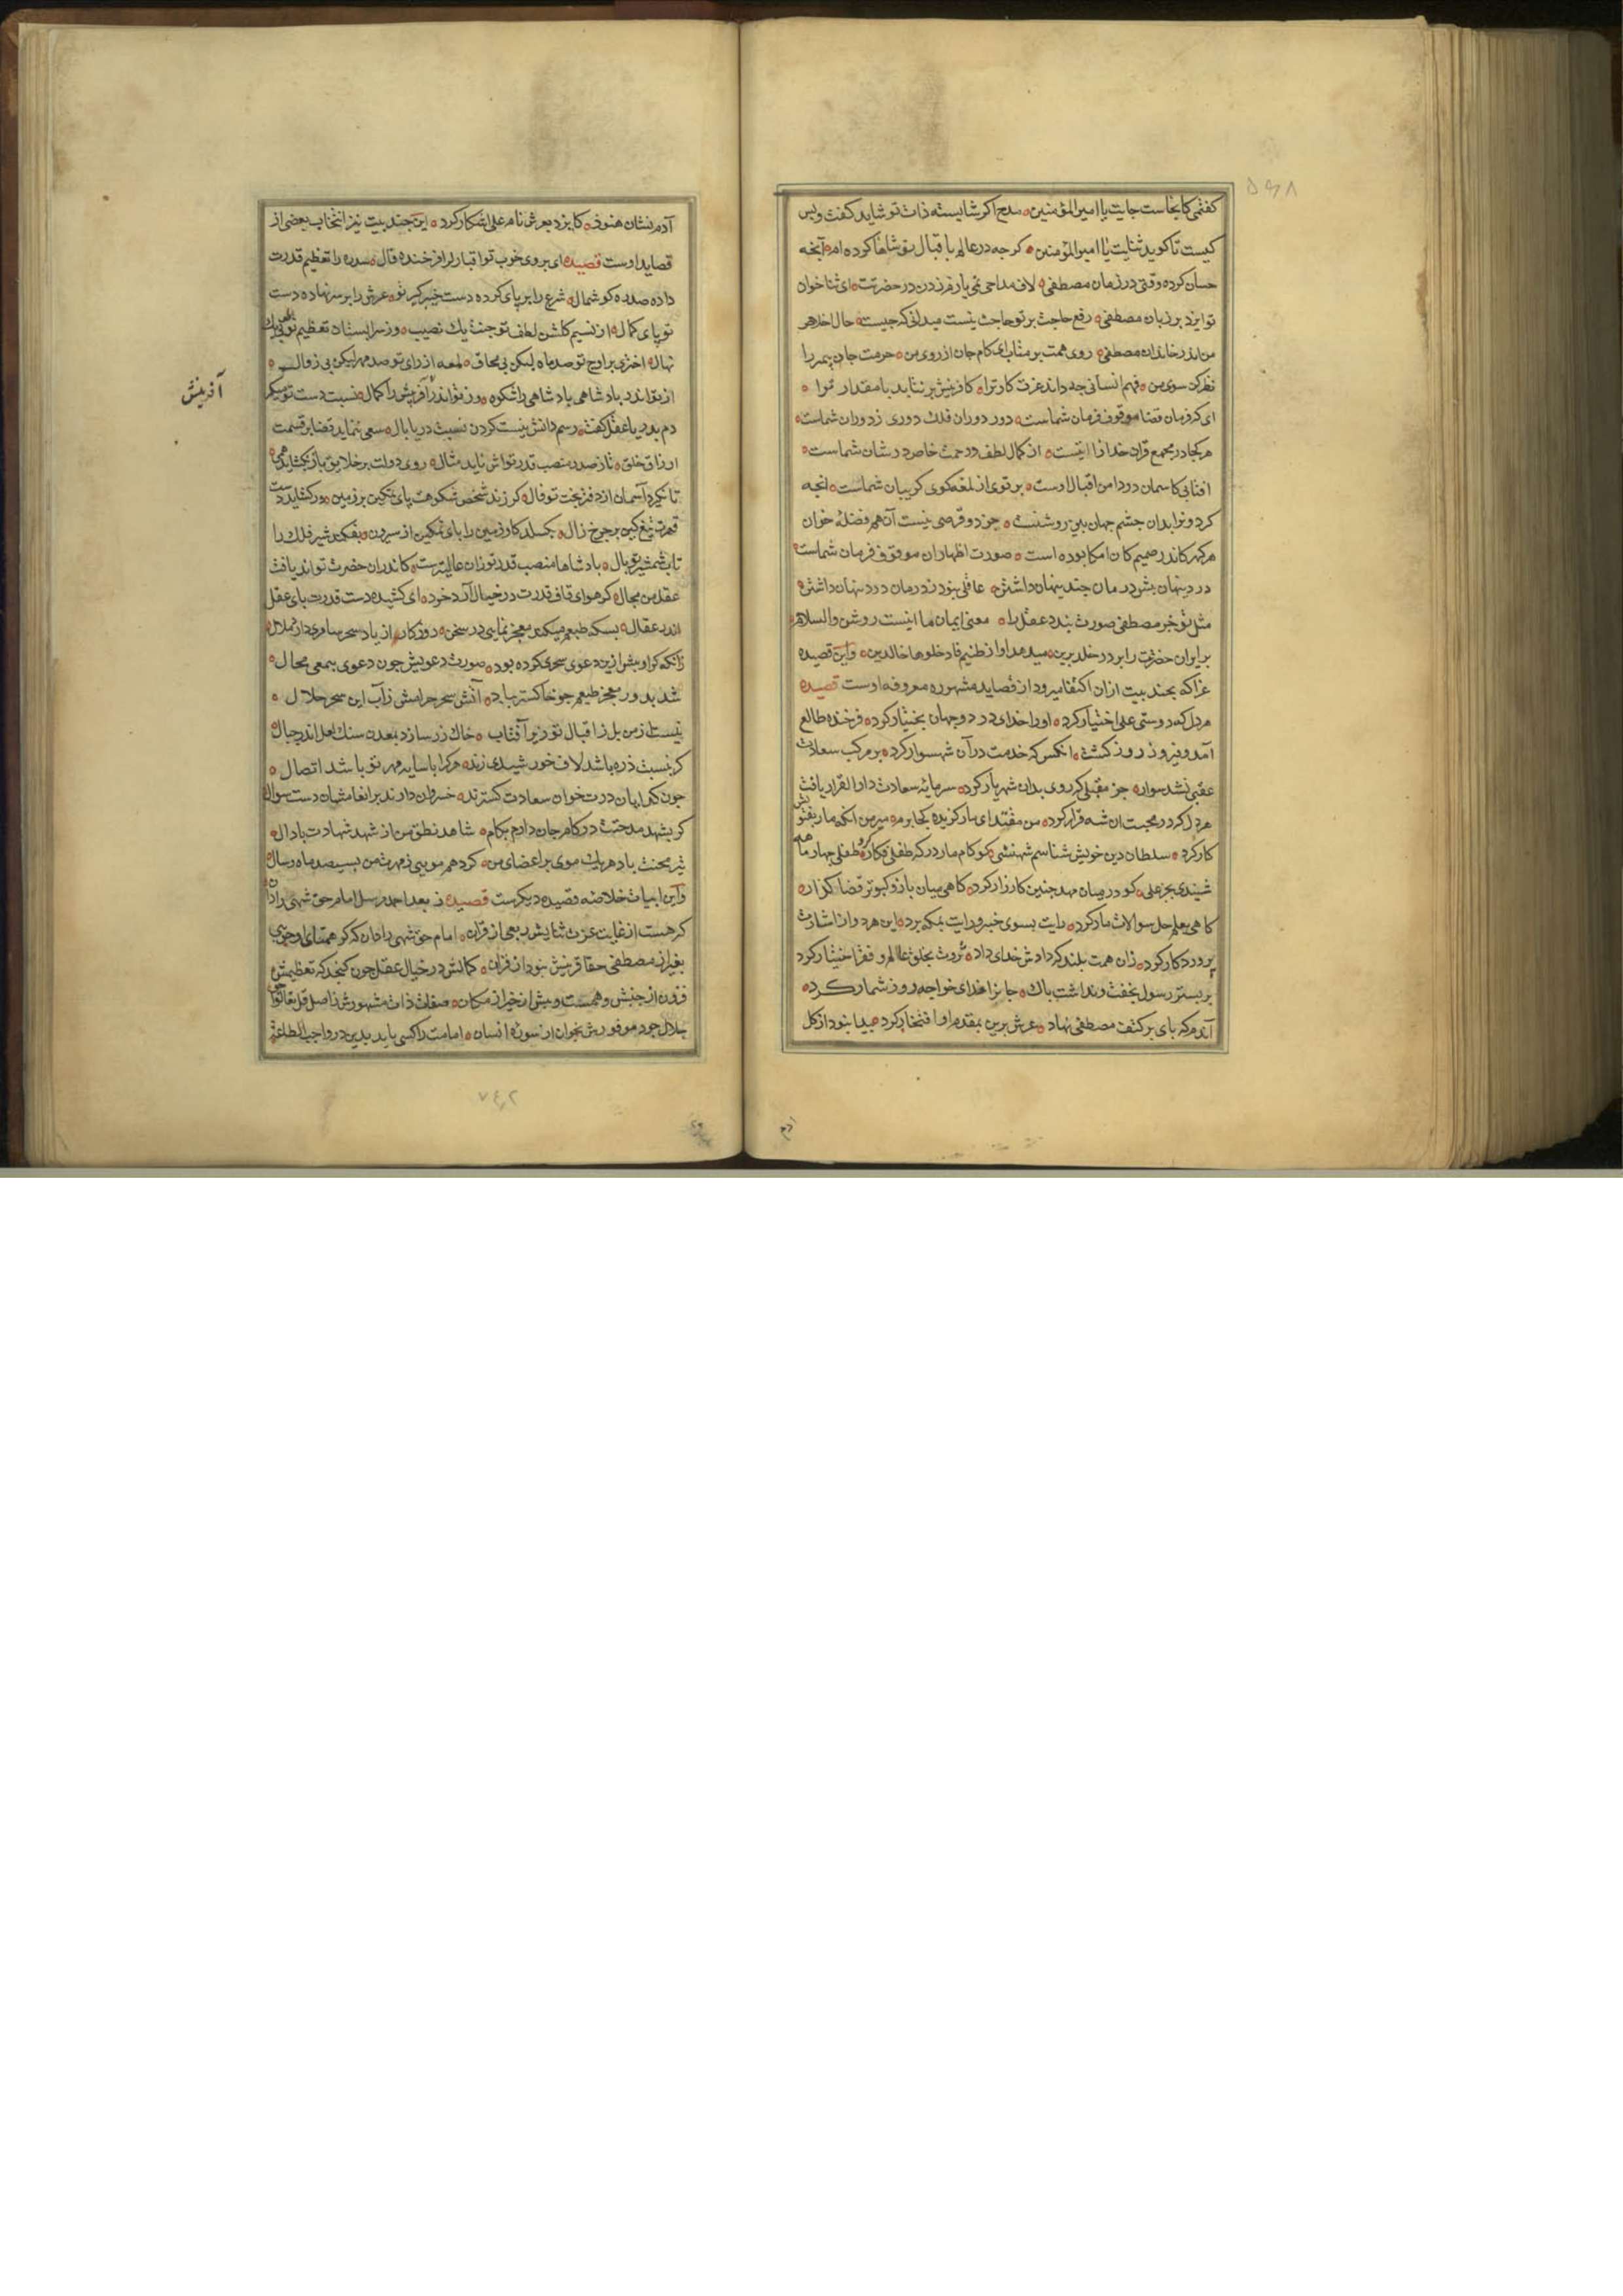 گفتمی کانجاست جایت یا امیرالمؤمنین مدح اگر شایسته ذات تو شاید گفت و بس
کیست تا گوید ثنایت یا امیرالمؤمنین گرچه در عالم باقبال تو شاها کرده‌ام آنچه
حسان کرده وقتی در زمان مصطفی لاف مداحی نمی‌یارم زدن در حضرتت ای ثنا خوان
تو ایزد بر زبان مصطفی رفع حاجت بر تو حاجت نیست میدانی که چیست حال اخلاص
من اندر خاندان مصطفی روی همت بر متاب ای کام جان از روی من حرمت جان پیمبر را
نظر کن سوی من فهم انسانی چه داند عزت کار ترا کافرینش بر نتابد با مقدار ترا
ای که فرمان قضا موقوف فرمان شماست دور دوران فلک دوری ز دوران شماست
هر کجا در مجمع قرآن خدا را آیتست از کمال لطف و رحمت خاص در شان شماست
افتابی کاسمان در دامن اقبال اوست پرتوی از لمعه کوی گریبان شماست انجه
گردون را بدان چشم جهان بین روشنست جز دو قرصی نیست آن هم فضله خوان
هر گهر کاندر صمیم کان امکا بوده است صورت اظهار آن موقوف فرمان شماست
درد پنهان پیش درمان چند پنهان داشتن عاقلی نبود ز درمان درد پنهان داشتن
مثل تو جز مصطفی صورت نبندد عقل را معنی ایمان ما اینست روشن والسلام
بر ایران حضرت را بر در خلد برین میدهد آواز طبتم فادخلوها خالدین و این قصیده
غرا که بچند بیت از آن اکتفا میرود از قصاید مشهوره معروفه اوست قصیده
هر دل که دوستی علی اختیار کرد او را خدای در دو جهان بختیار کرد فرخنده طالع
آمد و فیروز روز گشت انکس که خدمت در آن شهسوار کرد بر مرکب سعادت
عقبی نشد سوار جز مقبلی که روی بدان شهریار کرد سرمایه سعادت دار القرار یافت
هر دل که در محبت ان شه قرار کرد من مقتدای بار گزیده کجا برم میر من انکه مار
کار کرد سلطان دین خویش شناسم شهنشی کو کام مار در گه طفلی فکار کرد طفلی چهار ماهه
شنیدی بجز علی کو در میان مهد چنین کارزار کرد گاهی میان باز و کبوتر قضا گذار
گاهی بعلم حل سوالات مار کرد رایت بسوی خیبر و رایت بمکه برد این هر دو از اشارت
پروردگار کرد زان همت بلند که دادش خدای داد ثروت بخلق عالم و فقر اختیار کرد
بر بستر رسول بخفت و نداشت باک جان را فدای خواجه روز شمار کرد
آندم که پای بر کتف مصطفی نهاد عرش برین بمقدم او افتخار کرد پیدا نبود از گل
آدم نشان هنوز کایزد بعرش نام علی اشکار کرد این چند بیت نیز انتخاب بعضی از
قصاید اوست قصیده ای بروی خوب تو اقبال را فرخنده فال سدره را تعظیم قدرت
داده صد ره گوشمال شرع را بر پای کرده دست خیبر گیر تو عرش را بر سر نهاده دست
تو پای کمال از نسیم گلشن لطف تو جنت یک نصیب وز سرابستان تعظیم تو طوبی یک
نهال اختری بر اوج تو صد ماه لیکن بی محاق لمعه از رای تو صد مهر لیکن بی زوال
از تو اندر پادشاهی پادشاهی را شکوه وز تو اندر آفرینش را کمال نسبت دست تو میکر
دم بدریا عقل گفت رسم دانش نیست کردن نسبت دریا بال سعی ننماید قضا بر قسمت
ارزاق خلق تا ز صدر منصب قدر تواش ناید مثال روی دولت بر خلایق باز نگشاید همی
تا نگیرد آسمان از دفتر بخت تو فال گر زند شخص شکوهت پای تمکین بر زمین ور کشاید دست
قهرت تیغ کین بر چرخ زال بگسلد گاو زمین را پای تمکین از سرون بفکند شیر فلک را
تاب شمشیر تو یال پادشاها منصب قدر تو زان عالیترست کاندران حضرت تواند یافت
عقل من مجال گر هوای قاف قدرت در خیال آرد خرد ای کشیده دست قدرت پای عقل
اندر عقال بسکه طبعم میکند معجز نمایی در سخن روزگار از یاد سحر سامری دارد ملال
زانکه گر او پیش ازین دعوی سحری کرده بود صورت دعویش چون دعوی بیمعنی محال
شد بدور معجز طبعم چو خاکستر بباد آتش سحر حرامش زآب این سحر حلال
نیست از من بل ز اقبال تو زیرا آفتاب خاک زر سازد بمعدن سنک لعل اندر جبال
گر بنسبت ذره باشد لاف خورشیدی زند هر کرا با سایه مهر تو باشد اتصال
چون گدایان درت خوان سعادت گسترند خسروان دارند بر انعامشان دست سوال
گر بشهد مدحتت در کام جان دارم بکام شاهد نطق من از شهد شهادت باد لال
تیر محنت باد هر یک موی بر اعضای من گر دهم مویی ز مهرت من بسیصد ماه و سال
و این ابیات خلاصه قصیده دیگرست قصیده ز بعد احمد مرسل امام حق شهی را دان
که هست از غایت عزت ثنایش ربعی از قران امام حق شهی را دان که گر همتای او جویی
بغیر از مصطفی حقا قرینش نبود از قران کمالش در خیال عقل چون گنجد که تعظیمش
فزون از جنبش و همست و بیش از خیز امکان صفات ذات مشهورش ز اصل قل تعالوا
جلال جود موفورش بخوان از سوره انسان امامت را کسی باید بدین در واجب الطاعة
آفرینش
آدم